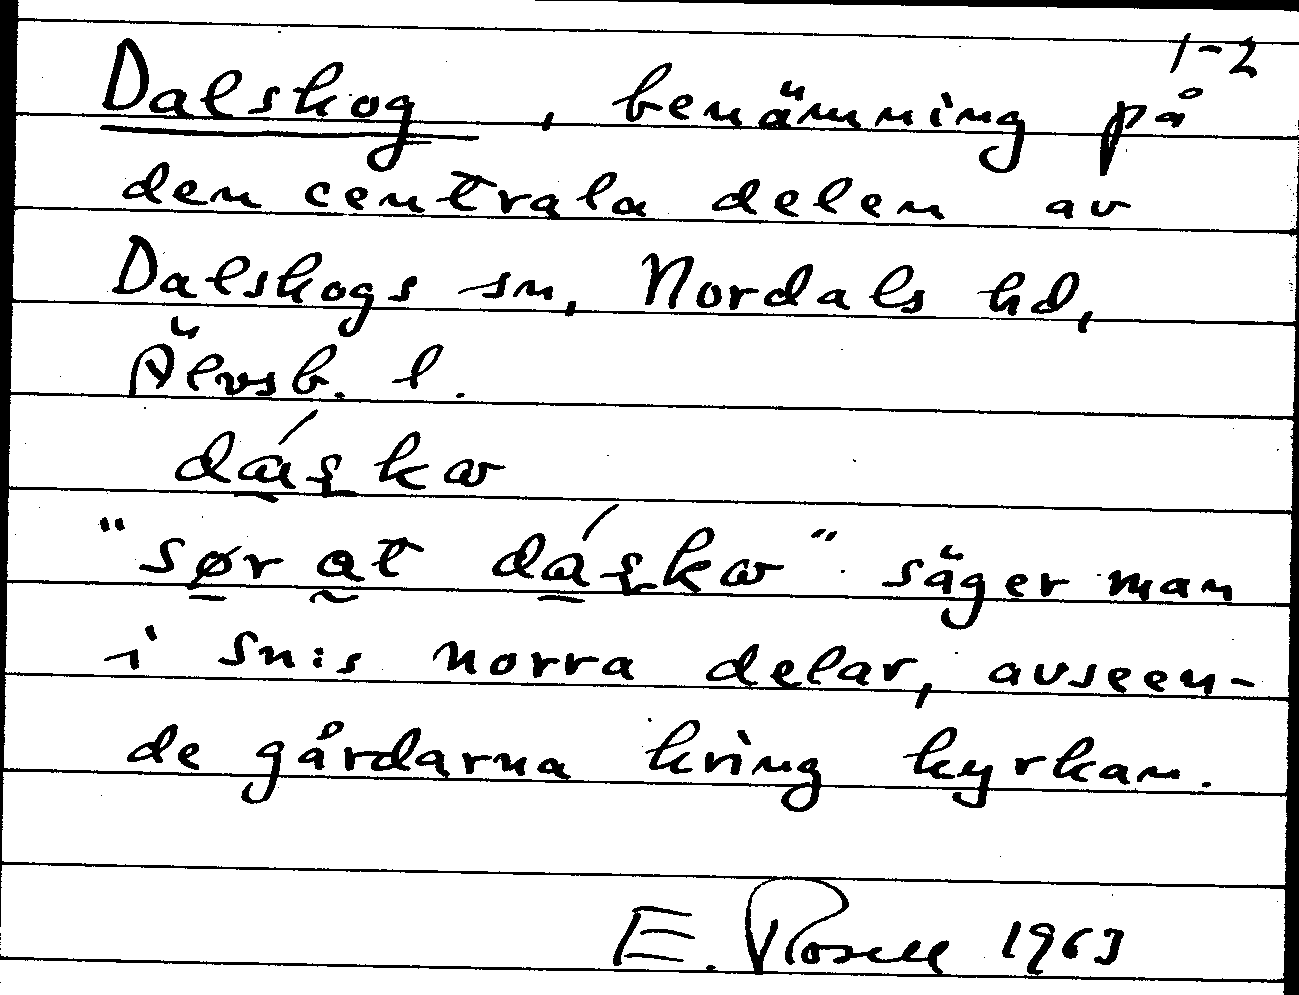 1-2
Dalskog, benämning på
den centrala delen av
Dalskogs sn, Nordals hd,
Älvsb. l.
dáʂkω
"sør at dáʂkω" säger man
i sn:s norra delar, avseen-
de gårdarna kring kyrkan.
E. Rosell 1963